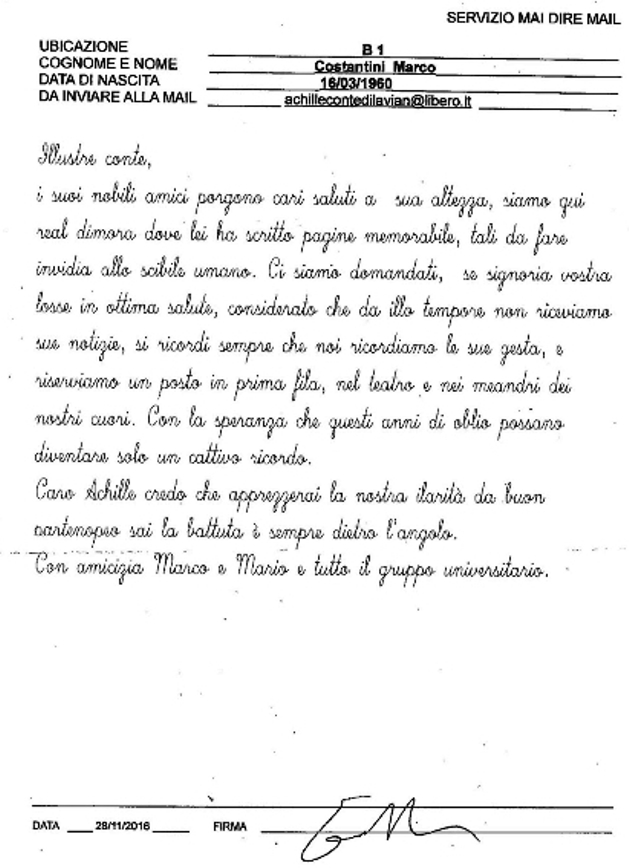 SERVIZIO MAI DIRE MAIL
UBICAZIONE B 1
COGNOME E NOME Costantini Marco
DATA DI NASCITA 16/03/1960
DA INVIARE ALLA MAIL achillecontedilavian@libero.it
Illustre conte,
i suoi nobili amici porgono cari saluti a sua altezza, siamo qui
real dimora dove lei ha scritto pagine memorabile, tali da fare
invidia allo scibile umano. Ci siamo domandati, se signoria vostra
fosse in ottima salute, considerato che da illo tempore non riceviamo
sue notizie, si ricordi sempre che noi ricordiamo le sue gesta, e
riserviamo un posto in prima fila, nel teatro e nei meandri dei
nostri cuori. Con la speranza che questi anni di oblio possano
diventare solo un cattivo ricordo.
Caro Achille credo che apprezzerai la nostra ilarità da buon
partenopeo sai la battuta è sempre dietro l'angolo.
Con amicizia Marco e Mario e tutto il gruppo universitario.
DATA 28/11/2016 FIRMA